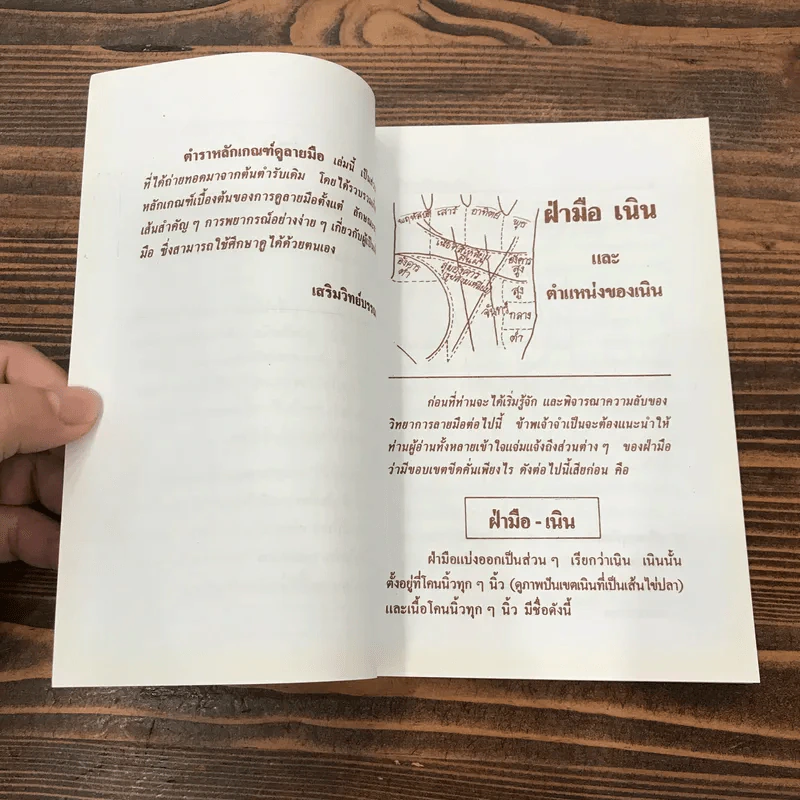 ตำราหลักเกณฑ์ดูลายมือ เล่มนี้
ที่ได้ถ่ายทอดมาจากต้นตำรับเดิม โดยได้รวบรวม
หลักเกณฑ์เบื้องต้นของการดูลายมือตั้งแต่
เส้นสำคัญ ๆ การพยากรณ์อย่างง่าย ๆ เกี่ยวกับ
มือ ซึ่งสามารถใช้ศึกษาดูได้ด้วยตนเอง
เสริมวิทย์บรรณ
พฤหัสบดี เสาร์ อาทิตย์ พุธ
อังคาร
สูง
อังคาร
ต่ำ
สูง
จันทร์ กลาง
ต่ำ
ฝ่ามือ เนิน
และ
ตำแหน่งของเนิน
ก่อนที่ท่านจะได้เริ่มรู้จัก และพิจารณาความลับของ
วิทยาการลายมือต่อไปนี้ ข้าพเจ้าจำเป็นจะต้องแนะนำให้
ท่านผู้อ่านทั้งหลายเข้าใจแจ่มแจ้งถึงส่วนต่าง ๆ ของฝ่ามือ
ว่ามีขอบเขตขีดคั่นเพียงไร ดังต่อไปนี้เสียก่อน คือ
ฝ่ามือ - เนิน
ฝ่ามือแบ่งออกเป็นส่วน ๆ เรียกว่าเนิน เนินนั้น
ตั้งอยู่ที่โคนนิ้วทุก ๆ นิ้ว (ดูภาพปันเขตเนินที่เป็นเส้นไข่ปลา)
และเนื้อโคนนิ้วทุก ๆ นิ้ว มีชื่อดังนี้